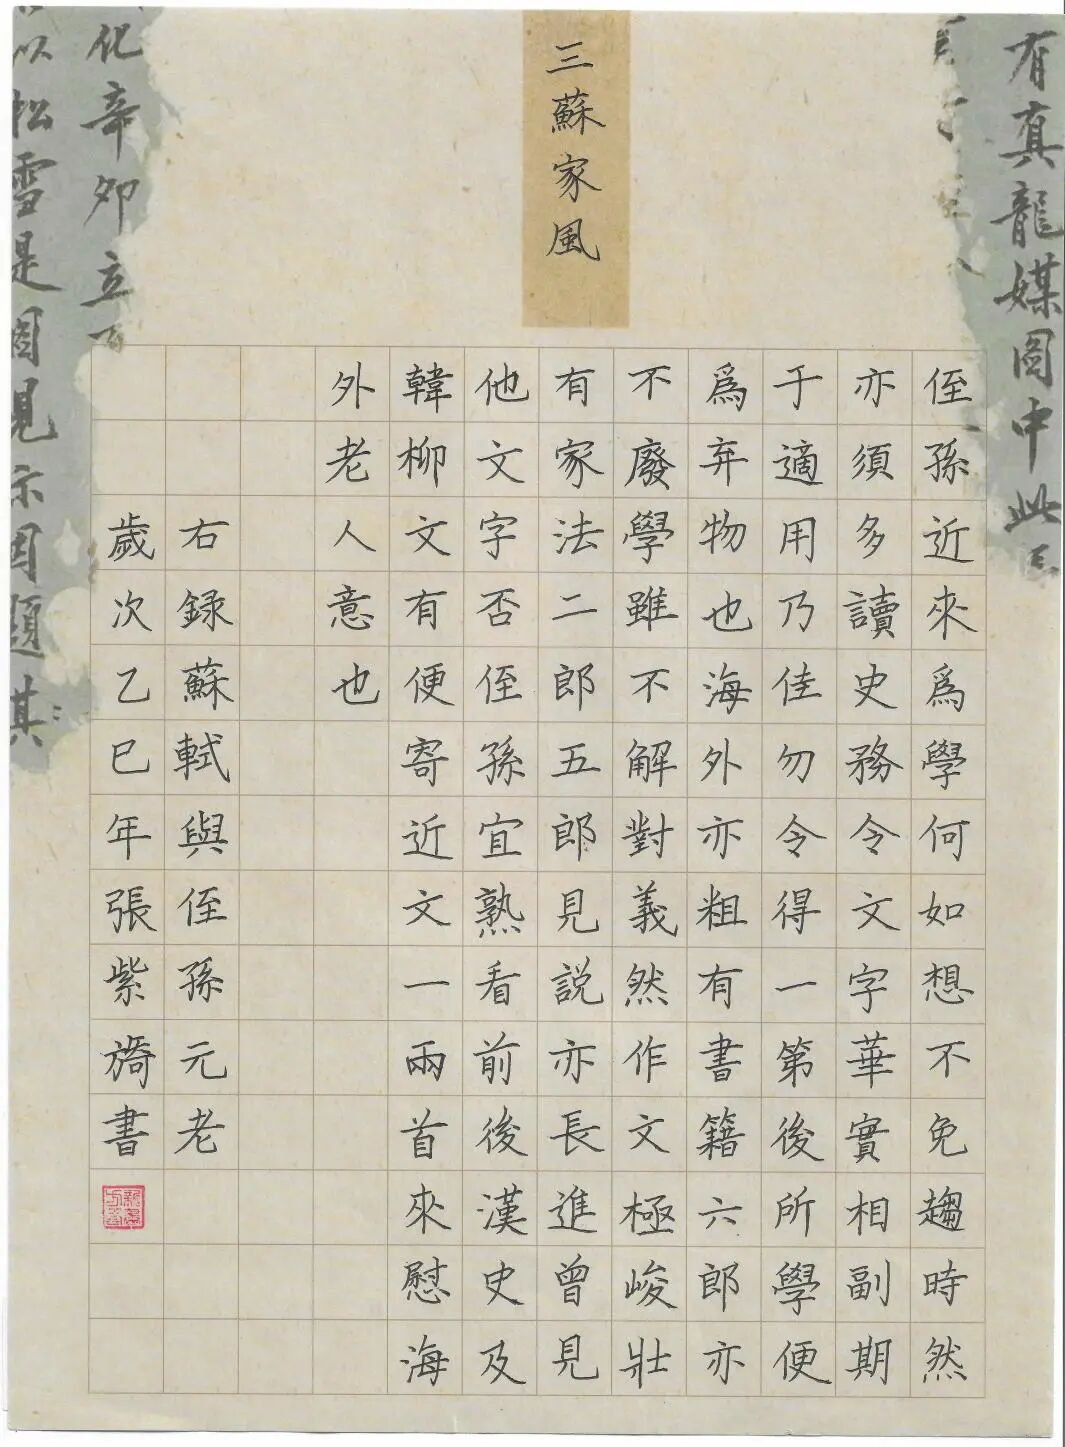 三蘇家風
侄孫近來爲學何如想不免趨時然
亦須多讀史務令文字華實相副期
于適用乃佳勿令得一第後所學便
爲弃物也海外亦粗有書籍六郎亦
不廢學雖不解對義然作文極峻壯
有家法二郎五郎見説亦長進曾見
他文字否侄孫宜熟看前後漢史及
韓柳文有便寄近文一兩首來慰海
外老人意也
右録蘇軾與侄孫元老
歲次乙巳年張紫旖書
有真龍媒圖中此
化辛卯立
以松雪是圖見示因題其